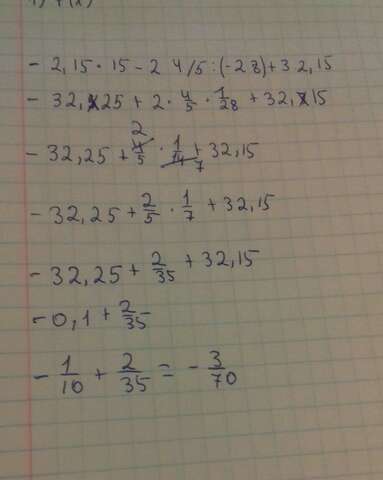 - 2,15 · 15 - 2 4/5 : (-28) + 32,15
- 32,25 + 2 · 4/5 · 1/28 + 32,15
- 32,25 + 4/5 2 · 1/14 7 + 32,15
- 32,25 + 2/5 · 1/7 + 32,15
- 32,25 + 2/35 + 32,15
- 0,1 + 2/35
- 1/10 + 2/35 = - 3/70